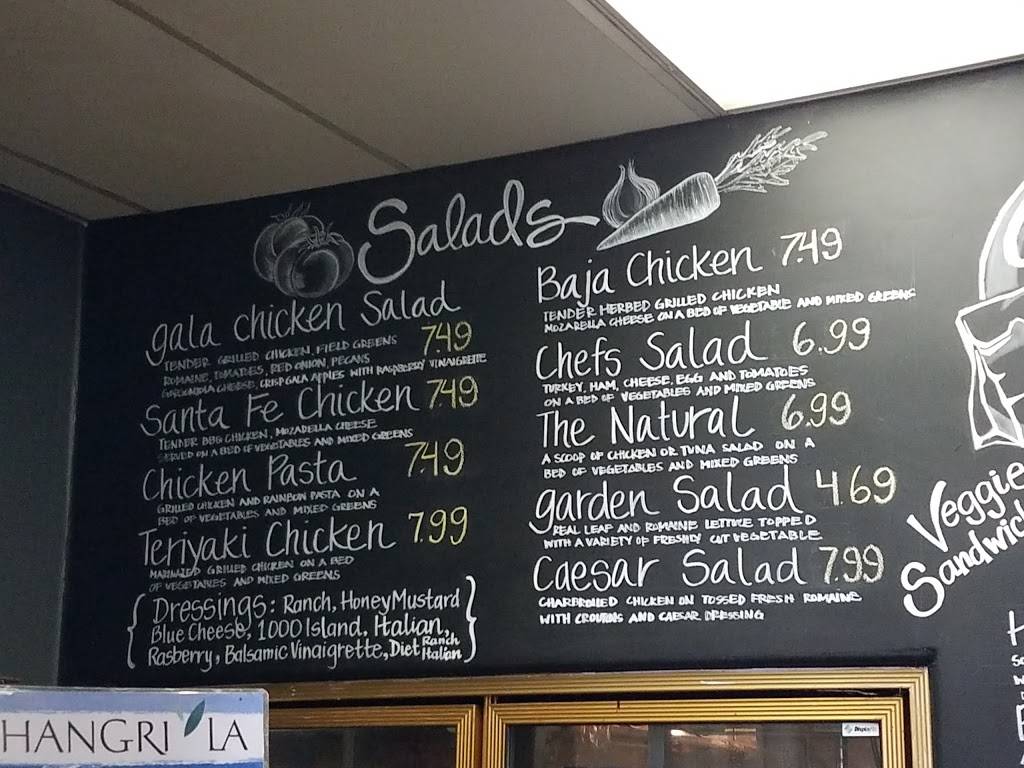 Salads
gala chicken Salad
7.49
TENDER GRILLED CHICKEN, FIELD GREENS
ROMAINE, TOMATOES, RED ONION, PECANS
GORGONZOLA CHEESE, CRISP GALA APPLES WITH RASPBERRY VINAIGRETTE
Santa Fe Chicken 7.49
TENDER BBQ CHICKEN, MOZARELLA CHEESE
SERVED ON A BED OF VEGETABLES AND MIXED GREENS
Chicken Pasta 7.49
GRILLED CHICKEN AND RAINBOW PASTA ON A
BED OF VEGETABLES AND MIXED GREENS
Teriyaki Chicken 7.99
MARINATED GRILLED CHICKEN ON A BED
OF VEGETABLES AND MIXED GREENS
{Dressings: Ranch, Honey Mustard
Blue Cheese, 1000 Island, Italian,
Rasberry, Balsamic Vinaigrette, Diet Ranch Italian}
Baja Chicken 7.49
TENDER HERBED GRILLED CHICKEN
MOZARELLA CHEESE ON A BED OF VEGETABLE AND MIXED GREENS
Chefs Salad 6.99
TURKEY, HAM, CHEESE, EGG AND TOMATOES
ON A BED OF VEGETABLES AND MIXED GREENS
The Natural 6.99
A SCOOP OF CHICKEN OR TUNA SALAD ON A
BED OF VEGETABLES AND MIXED GREENS
garden Salad 4.69
REAL LEAF AND ROMAINE LETTUCE TOPPED
WITH A VARIETY OF FRESHLY CUT VEGETABLE
Caesar Salad 7.99
CHARBROILED CHICKEN ON TOSSED FRESH ROMAINE
WITH CROUTONS AND CAESAR DRESSING
Veggie
Sandwich
HANGRI LA